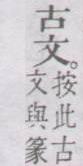 古文。
按此古
文與篆